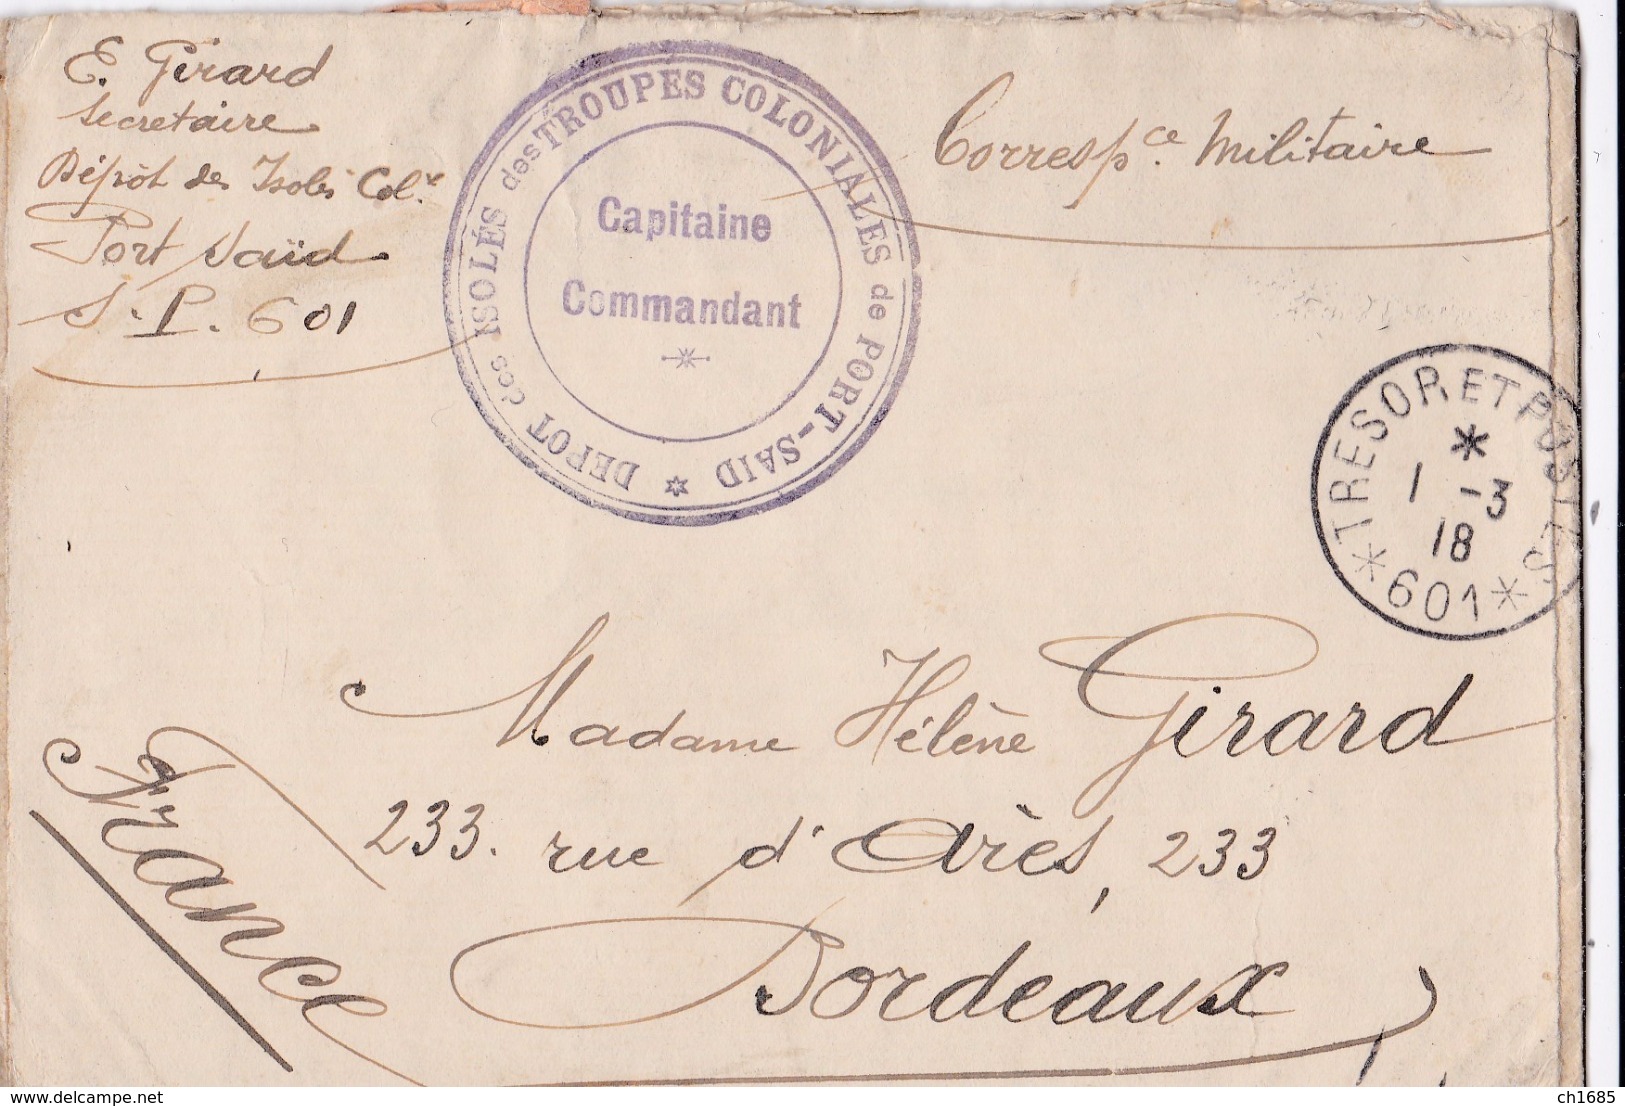 E. Girard
Secretaire
Dépôt des Isolés Col.x
Port Saïd
S.P. 601
DEPOT des ISOLÉS des TROUPES COLONIALES de PORT-SAID
Capitaine
Commandant
Correspce. Militaire
*TRESOR ET POSTES*
1 -3
18
601
Madame Hélène Girard
233. rue d'Arès, 233
Bordeaux
France
delcampe.net
ch1685